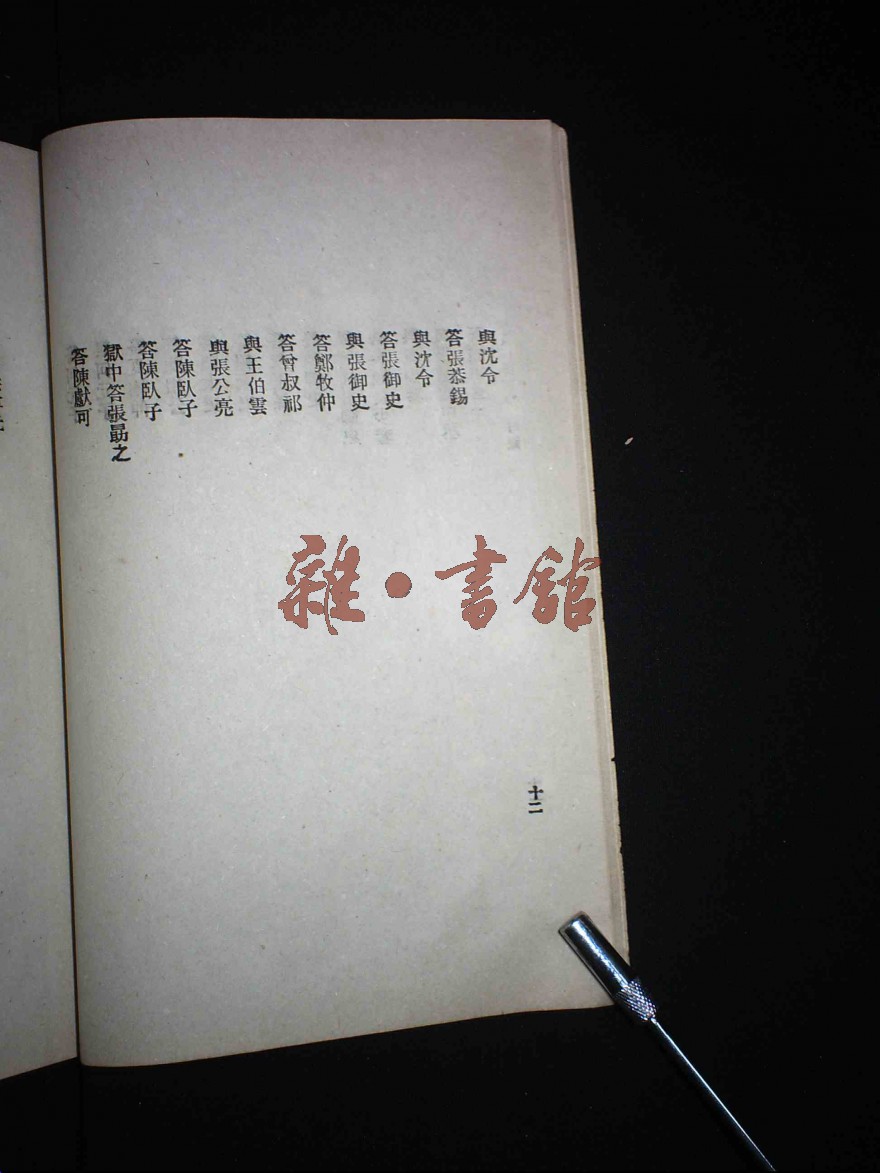 與沈令
答張恭錫
與沈令
答張御史
與張御史
答鄭牧仲
答曾叔祁
與王伯雲
與張公亮
答陳臥子
答陳臥子
獄中答張勗之
答陳獻可
十二
雜•書館